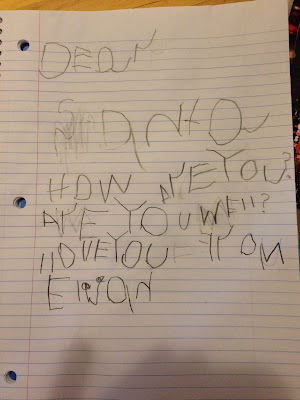 DEAr
SANtA
HOW ArE YOU?
ArE YOU WEll?
I lOVE YOU FrOM
EWAN